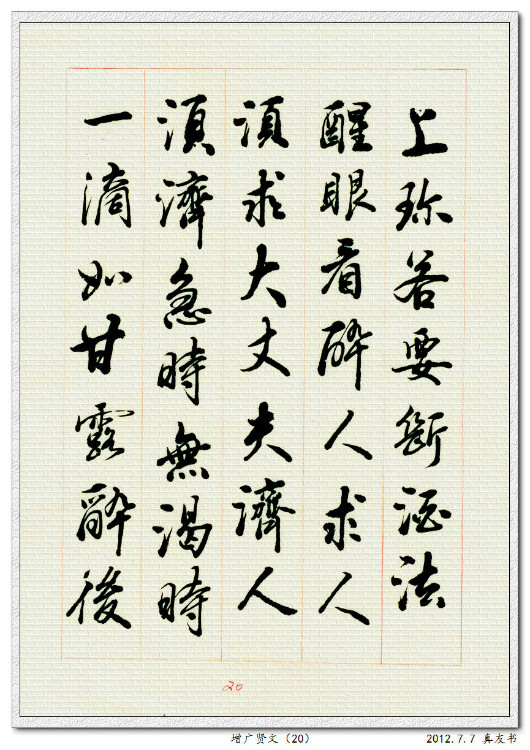 上珎若要斷酒法
醒眼看醉人求人
須求大丈夫濟人
須濟急時無渴時
一滴如甘露醉後
20
增广贤文（20）
2012.7.7 真友书